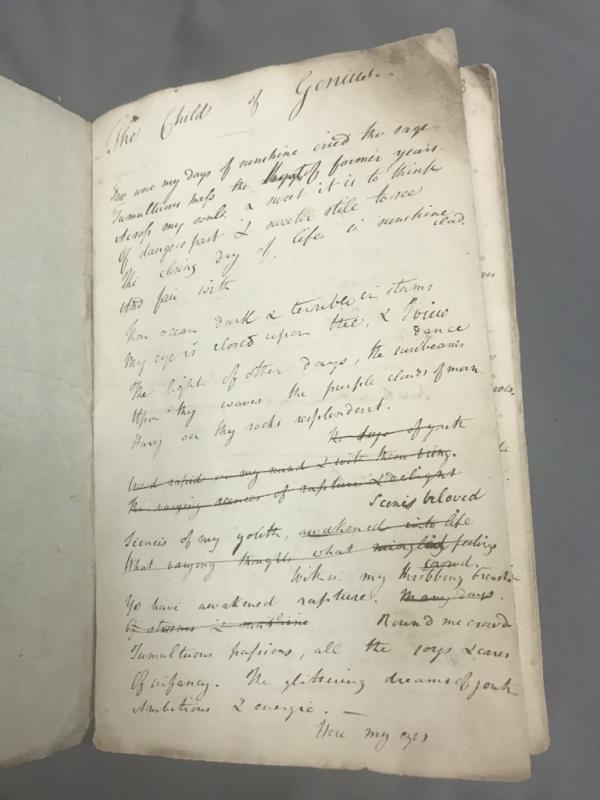 The Child of Genius.
Few were my days of sunshine cried the sage
Tumultuous pass the of former years.
Across my soul. & sweet it is to think
Of dangers past & sweeter still to see
The closing day of life in sunshine clad.
And fair with
Thou ocean dark & terrible in storms
My eye is closed upon thee, & I view
The light of other days, the sunbeams dance
Upon thy waves the purple clouds of morn
Hang on thy rocks resplendent.
the days of youth
rapid on my mind & with them bring
the varying scences of rapture & delight
Scenes beloved
Sceneis of my youth, awakened into life
What varying thoughts what mingled feelings
crowd.
Within my throbbing breast
Ye have awakened rapture. Many days
Of storms & sunshine Round me crowd
Tumultuous passions, all the joys & cares
Of infancy. The glittering dreams of youth
Ambitious & energic. —
Here my eyes